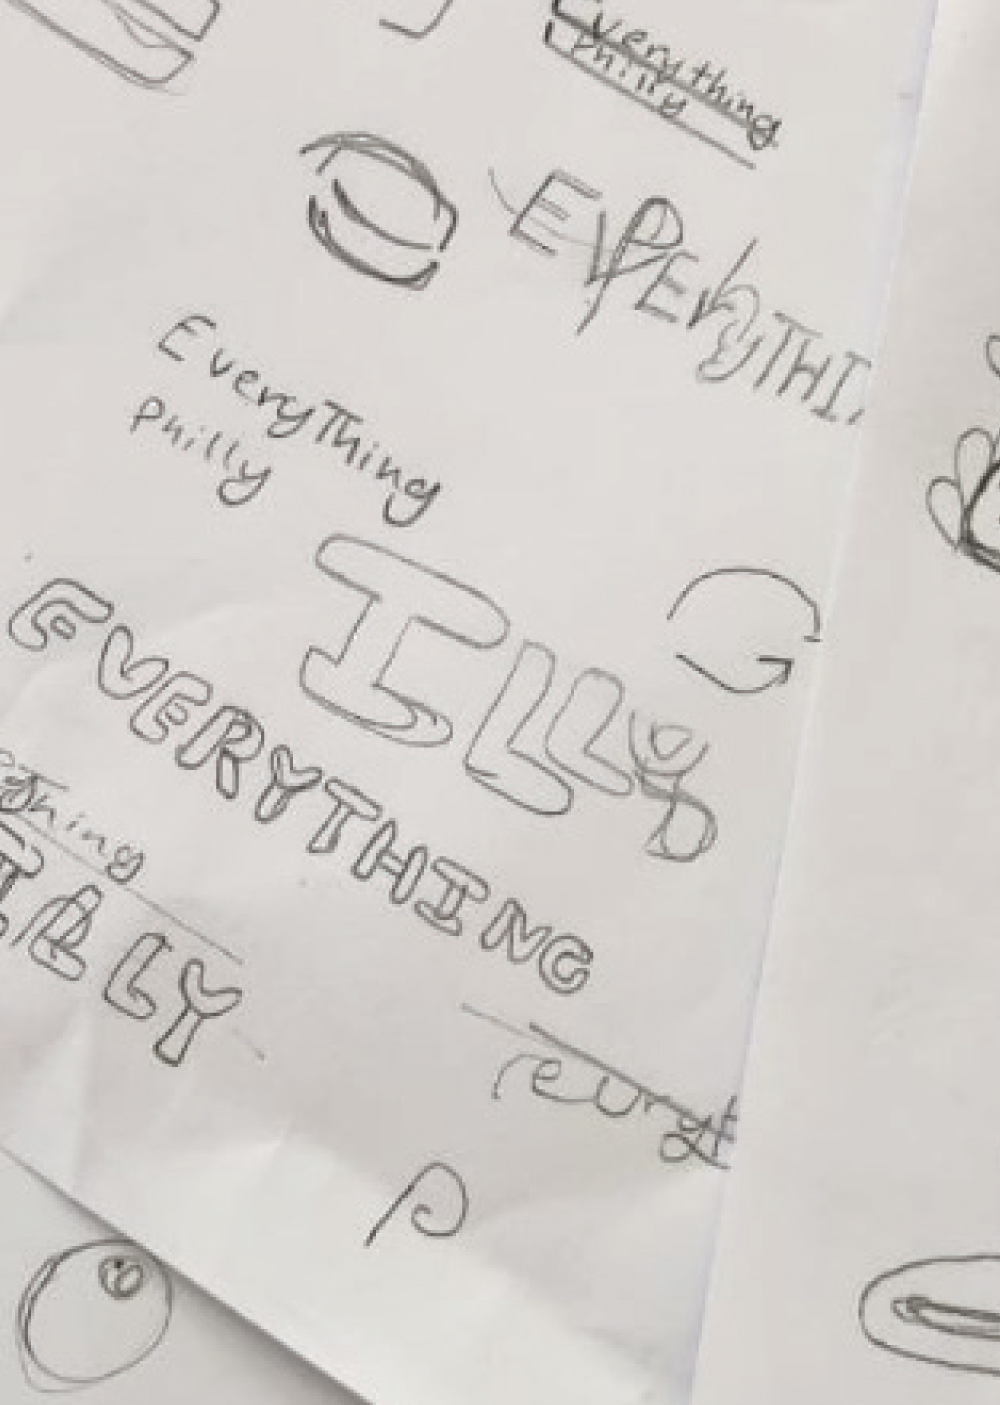 Everything
Philly
EVERYTHI
EveryThing
Philly
ILLY
EVERYTHING
Thing
ILLY
P